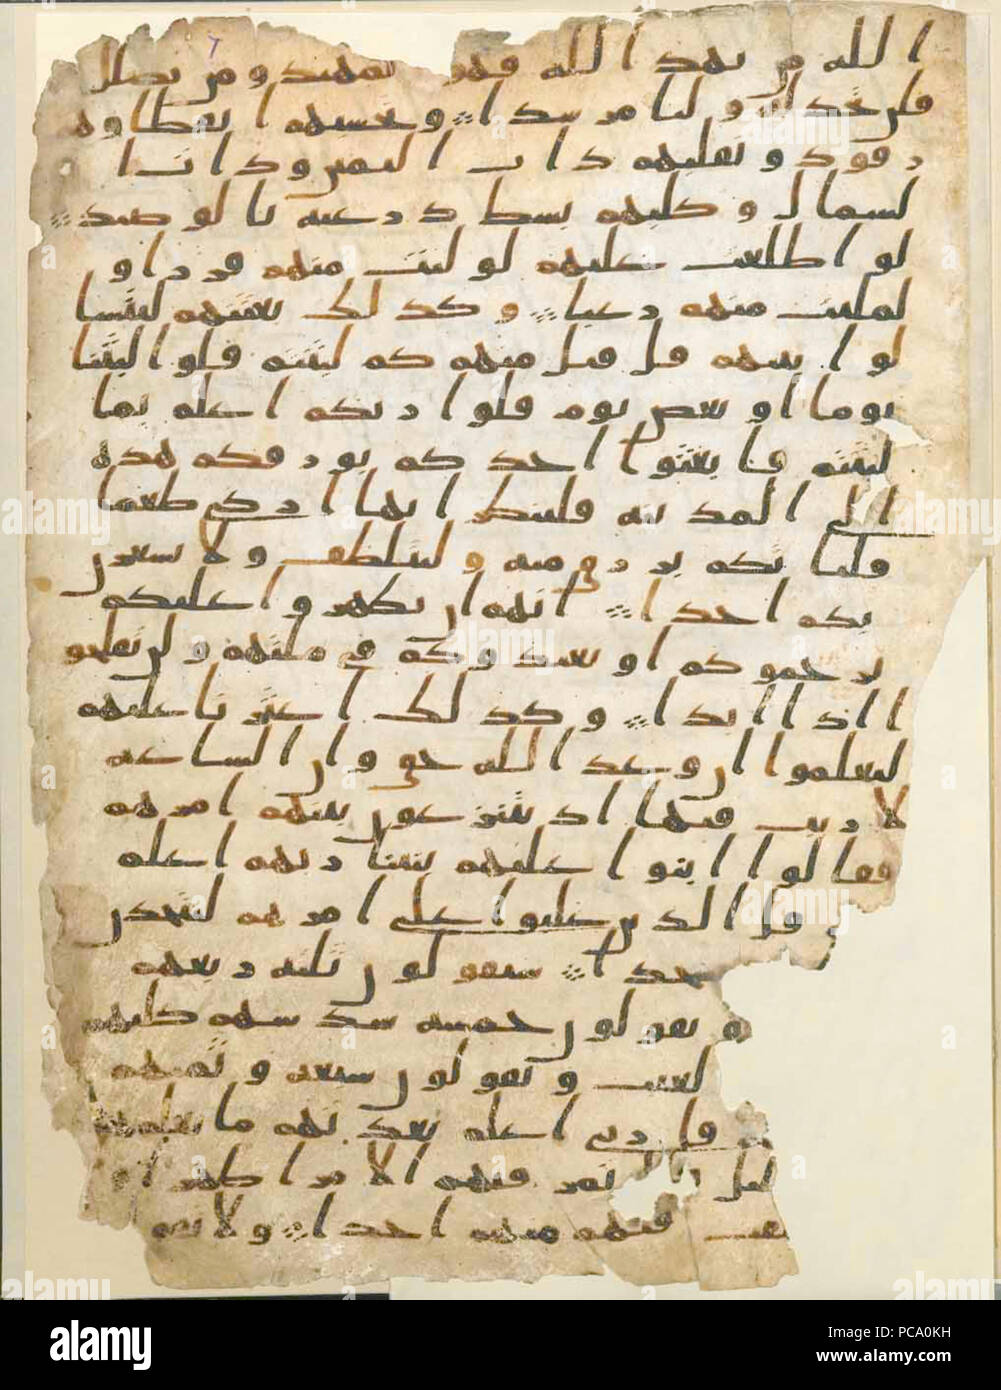 الله من يهد الله فهو المهتد ومن يضلل
فلن تجد له وليا مرشدا وتحسبهم ايقاظا وهم
رقود ونقلبهم ذات اليمين وذات ا
لشمال وكلبهم بسط ذرعيه بالوصيد
لو اطلعت عليهم لوليت منهم فررا و
لملئت منهم رعبا وكذلك بعثنهم ليتسا
لوا بينهم قل قئل منهم كم لبثتم قلوا لبثنا
يوما او بعض يوم قلوا ربكم اعلم بما
لبثتم فابعثوا احدكم بورقكم هذه
الى المدينة فلينظر ايها ازكى طعما
فلياتكم برزق منه وليتلطف ولا يشعرن
بكم احدا انهم ان يظهروا عليكم
يرجموكم او يعيدوكم في ملتهم ولن تفلحو
ا اذا ابدا وكذلك اعثرنا عليهم
ليعلموا ان وعد الله حق وان الساعة
لا ريب فيها اذ يتنزعون بينهم امرهم
فقالوا ابنوا عليهم بنينا ربهم اعلم
قل الذين غلبوا على امرهم لنتخذن
جدا سيقولون ثلثة ربعهم
ويقولون خمسة سدسهم كلبهم
لغيب ويقولون سبعة وثمنهم
قل ربي اعلم بعدتهم ما يعلمهم
ليل تمر فيهم الا مرا ظهرا
فيهم منهم احدا ولا تقو
alamy
Image ID: PCA0KH
www.alamy.com